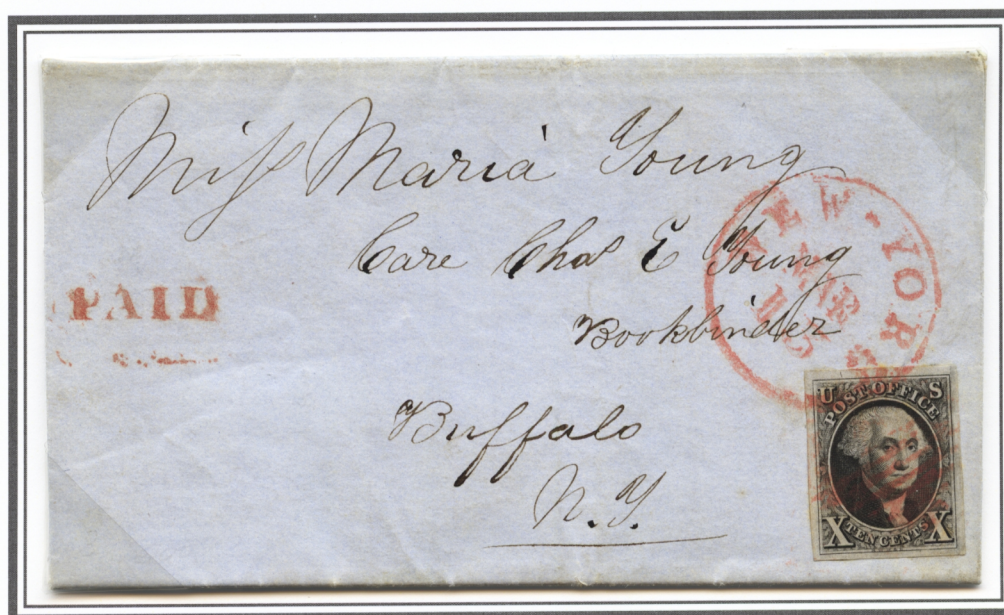 Miss Maria Young
Care Chas E Young
Bookbinder
Buffalo
N.Y.
PAID
NEW-YORK
MAR
U S
POST OFFICE
X TEN CENTS X